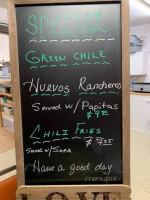 SPECIAL
GREEN CHILE
Huevos Rancheros
SERVED w/ PAPITAS
CHILI FRIES
SERVED w/ SOPA
Have a good day
menupix
LOVE